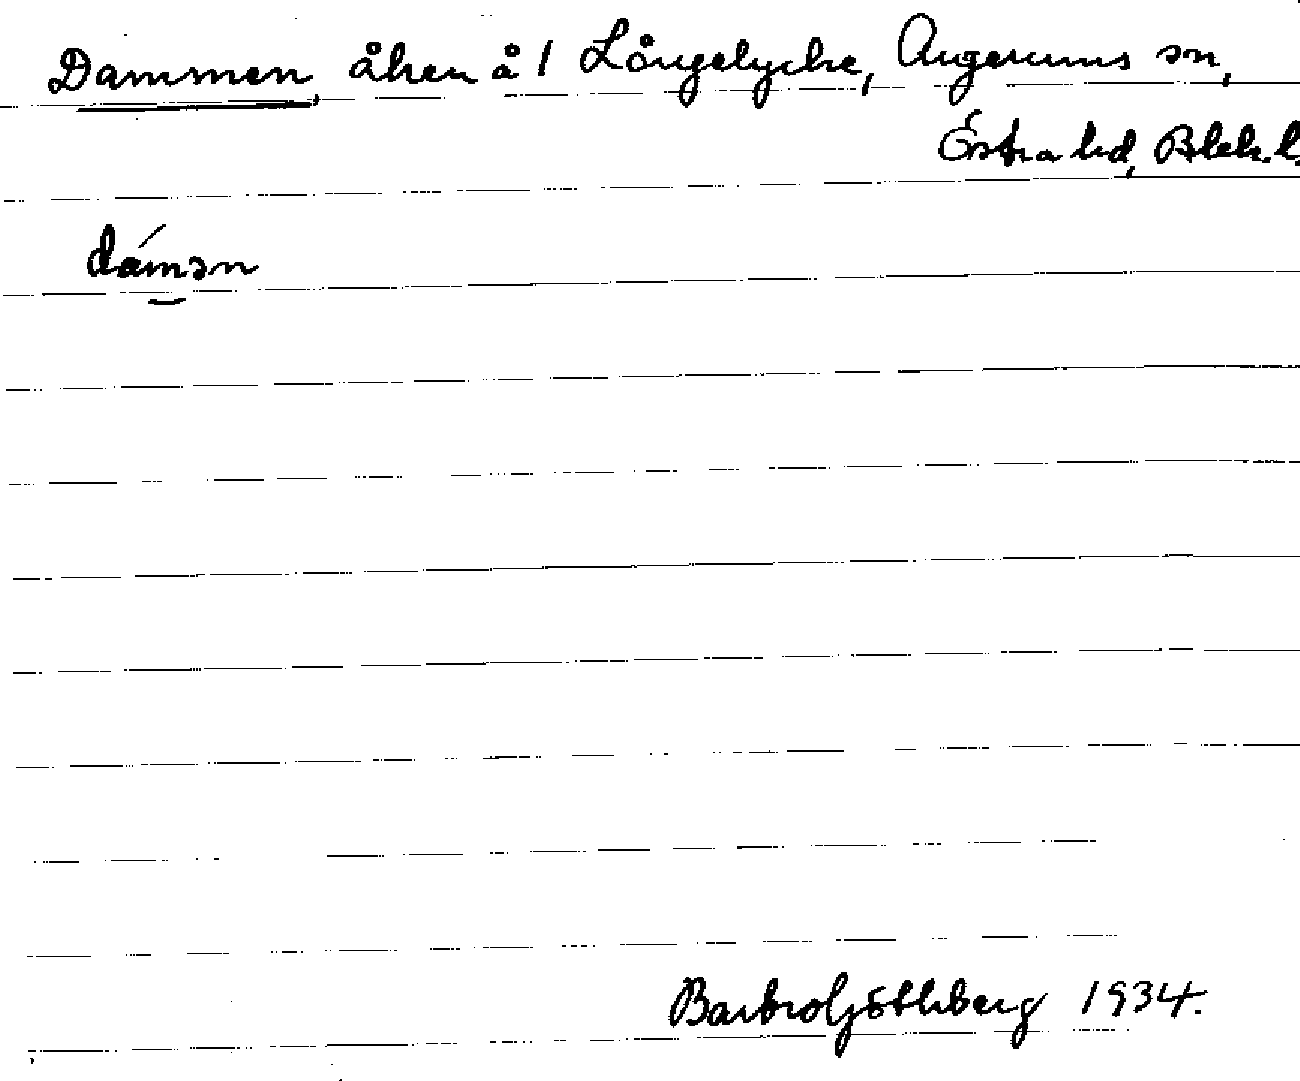 Dammen, åker å 1 Långelycke, Augerums sn,
Östra hd, Blek. l.
dámən
Barbro Göthberg 1934.